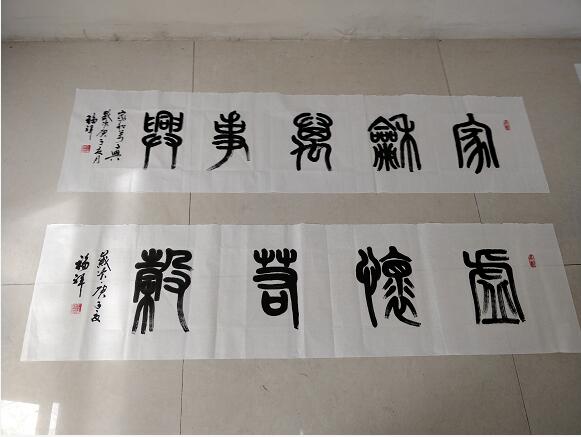 家龢萬事興
家和万事興
歲次庚子夏月
福祥
虛懷若穀
歲次庚子夏
福祥